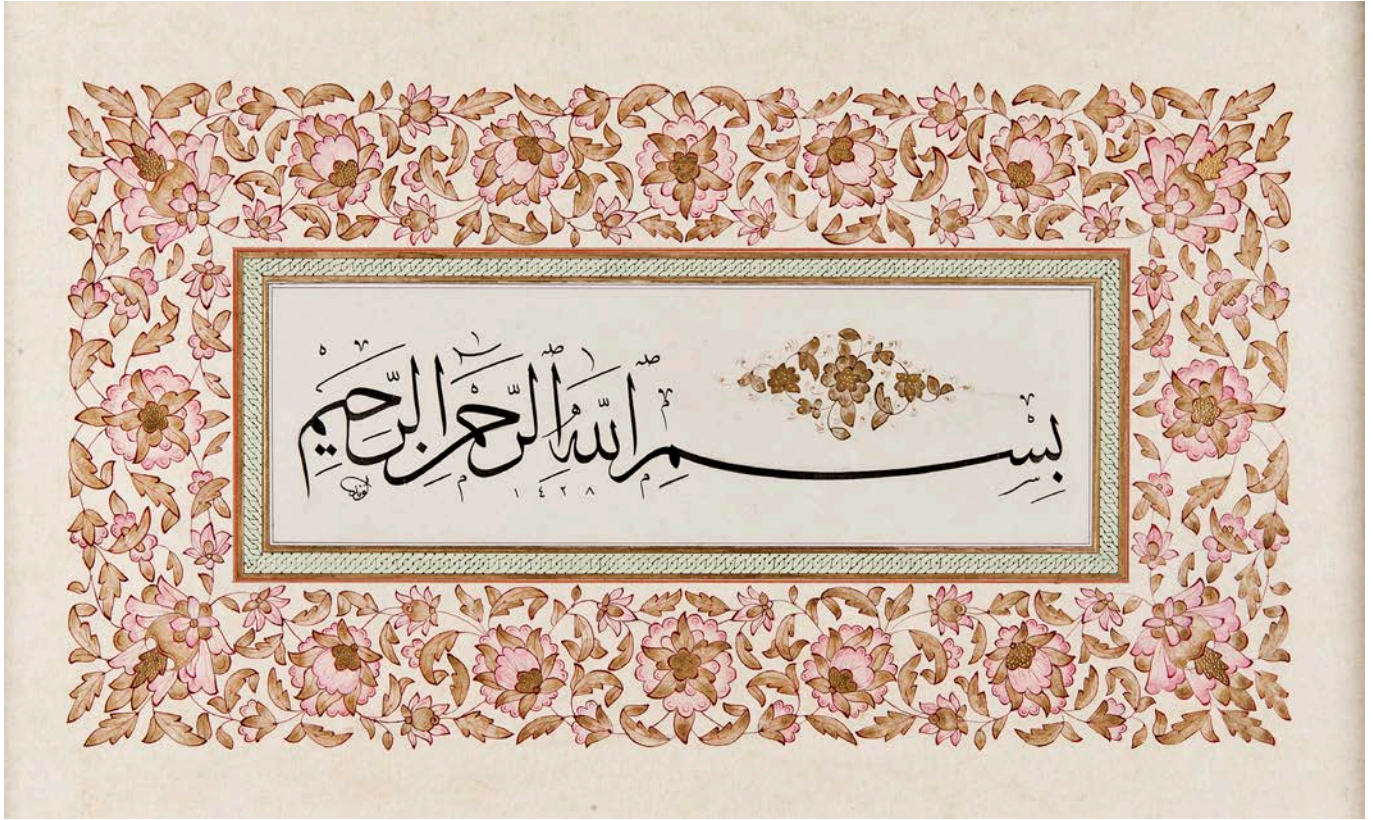 بِسْمِ اللَّهِ الرَّحْمَٰنِ الرَّحِيمِ
١٤٢٨